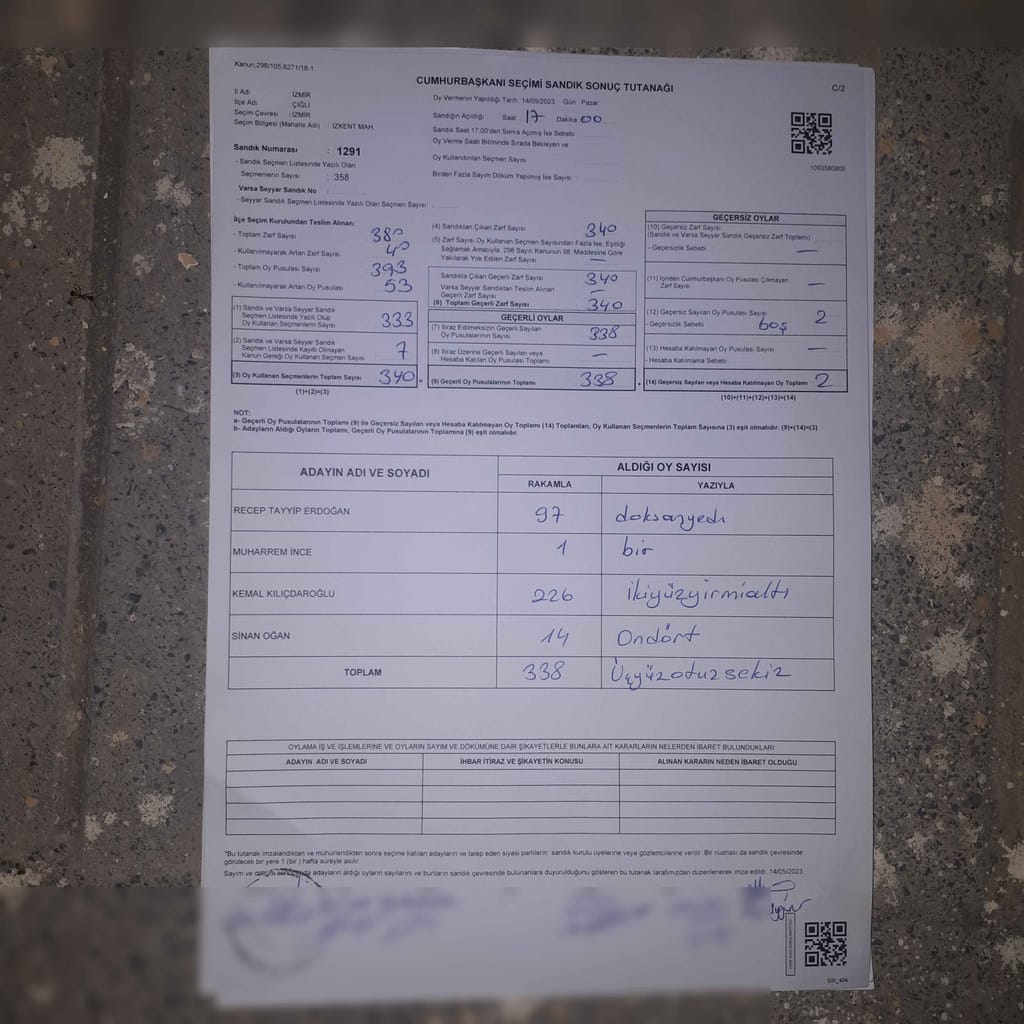 Kanun;298/105;6271/18-1
CUMHURBAŞKANI SEÇİMİ SANDIK SONUÇ TUTANAĞI
C/2
İl Adı : İZMİR
İlçe Adı : ÇİĞLİ
Seçim Çevresi : İZMİR
Seçim Bölgesi (Mahalle Adı) : İZKENT MAH.
Oy Vermenin Yapıldığı Tarih :14/05/2023 Gün : Pazar
Sandığın Açıldığı Saat 17 Dakika 00
Sandık Saat 17:00'den Sonra Açımış İse Sebebi
Oy Verme Saati Bitiminde Sırada Bekleyen ve
Oy Kullandırılan Seçmen Sayısı
Birden Fazla Sayım Döküm Yapılmış İse Sayısı :
1093580809
Sandık Numarası : 1291
- Sandık Seçmen Listesinde Yazılı Olan
Seçmenlerin Sayısı : 358
Varsa Seyyar Sandık No :
- Seyyar Sandık Seçmen Listesinde Yazılı Olan Seçmen Sayısı :
İlçe Seçim Kurulundan Teslim Alınan:
- Toplam Zarf Sayısı 380
- Kullanılmayarak Artan Zarf Sayısı 40
- Toplam Oy Pusulası Sayısı 393
- Kullanılmayarak Artan Oy Pusulası 53
(1) Sandık ve Varsa Seyyar Sandık
Seçmen Listesinde Yazılı Olup
Oy Kullanan Seçmenlerin Sayısı 333
(2) Sandık ve Varsa Seyyar Sandık
Seçmen Listesinde Kayıtlı Olmayan
Kanun Gereği Oy Kullanan Seçmen Sayısı 7
(3) Oy Kullanan Seçmenlerin Toplam Sayısı 340
(1)+(2)=(3)
(4) Sandıktan Çıkan Zarf Sayısı 340
(5) Zarf Sayısı Oy Kullanan Seçmen Sayısından Fazla İse, Eşitliği
Sağlamak Amacıyla; 298 Sayılı Kanunun 98. Maddesine Göre
Yakılarak Yok Edilen Zarf Sayısı —
Sandıkta Çıkan Geçerli Zarf Sayısı 340
Varsa Seyyar Sandıktan Teslim Alınan
Geçerli Zarf Sayısı —
(6) Toplam Geçerli Zarf Sayısı 340
GEÇERLİ OYLAR
(7) İtiraz Edilmeksizin Geçerli Sayılan
Oy Pusulalarının Sayısı 338
(8) İtiraz Üzerine Geçerli Sayılan veya
Hesaba Katılan Oy Pusulası Toplamı —
(9) Geçerli Oy Pusulalarının Toplamı 338
GEÇERSİZ OYLAR
(10) Geçersiz Zarf Sayısı
(Sandık ve Varsa Seyyar Sandık Geçersiz Zarf Toplamı)
- Geçersizlik Sebebi —
(11) İçinden Cumhurbaşkanı Oy Pusulası Çıkmayan
Zarf Sayısı —
(12) Geçersiz Sayılan Oy Pusulası Sayısı 2
- Geçersizlik Sebebi boş
(13) Hesaba Katılmayan Oy Pusulası Sayısı —
- Hesaba Katılmama Sebebi
(14) Geçersiz Sayılan veya Hesaba Katılmayan Oy Toplamı 2
(10)+(11)+(12)+(13)=(14)
NOT:
a- Geçerli Oy Pusulalarının Toplamı (9) ile Geçersiz Sayılan veya Hesaba Katılmayan Oy Toplamı (14) Toplamları, Oy Kullanan Seçmenlerin Toplam Sayısına (3) eşit olmalıdır. (9)+(14)=(3)
b- Adayların Aldığı Oyların Toplamı, Geçerli Oy Pusulalarının Toplamına (9) eşit olmalıdır.
ADAYIN ADI VE SOYADI
ALDIĞI OY SAYISI
RAKAMLA YAZIYLA
RECEP TAYYİP ERDOĞAN 97 doksanyedi
MUHARREM İNCE 1 bir
KEMAL KILIÇDAROĞLU 226 ikiyüzyirmialtı
SİNAN OĞAN 14 Ondört
TOPLAM 338 Üçyüzotuzsekiz
OYLAMA İŞ VE İŞLEMLERİNE VE OYLARIN SAYIM VE DÖKÜMÜNE DAİR ŞİKAYETLERLE BUNLARA AİT KARARLARIN NELERDEN İBARET BULUNDUKLARI
ADAYIN ADI VE SOYADI İHBAR İTİRAZ VE ŞİKAYETİN KONUSU ALINAN KARARIN NEDEN İBARET OLDUĞU
*Bu tutanak imzalandıktan ve mühürlendikten sonra seçime katılan adayların ve talep eden siyasi partilerin sandık kurulu üyelerine veya gözlemcilerine verilir. Bir nüshası da sandık çevresinde
görülecek bir yere 1 (bir ) hafta süreyle asılır.
Sayım ve döküm sonucunda adayların aldığı oyların sayılarını ve bunların sandık çevresinde bulunanlara duyurulduğunu gösteren bu tutanak tarafımızdan düzenlenerek imza edildi. 14/05/2023